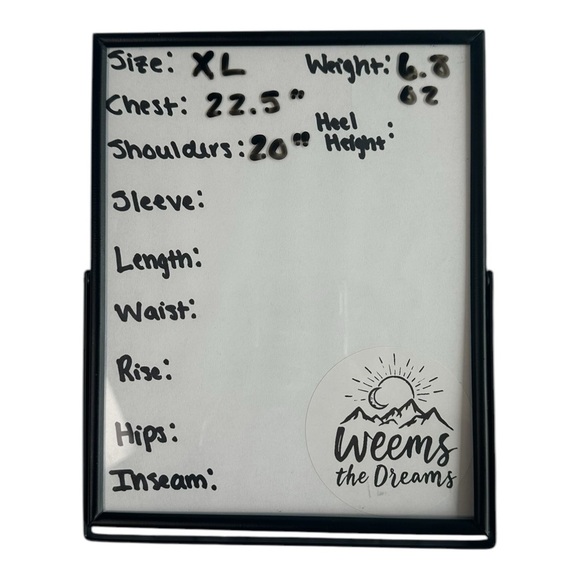 Size: XL
Weight: 6.8
oz
Chest: 22.5"
Heel
Height:
Shoulders: 20"
Sleeve:
Length:
Waist:
Rise:
Hips:
Inseam:
Weems
the Dreams